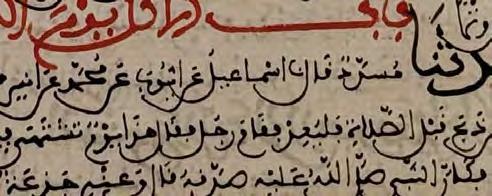 باب الاكل يوم
حدثنا مسدد قال نا اسماعيل عن ايوب عن محمد عن انس
ذبح قبل الصلاة فليعد فقام رجل فقال هذا يوم يشتهى
فكان النبي صلى الله عليه صدقه قال وعندي جذعة